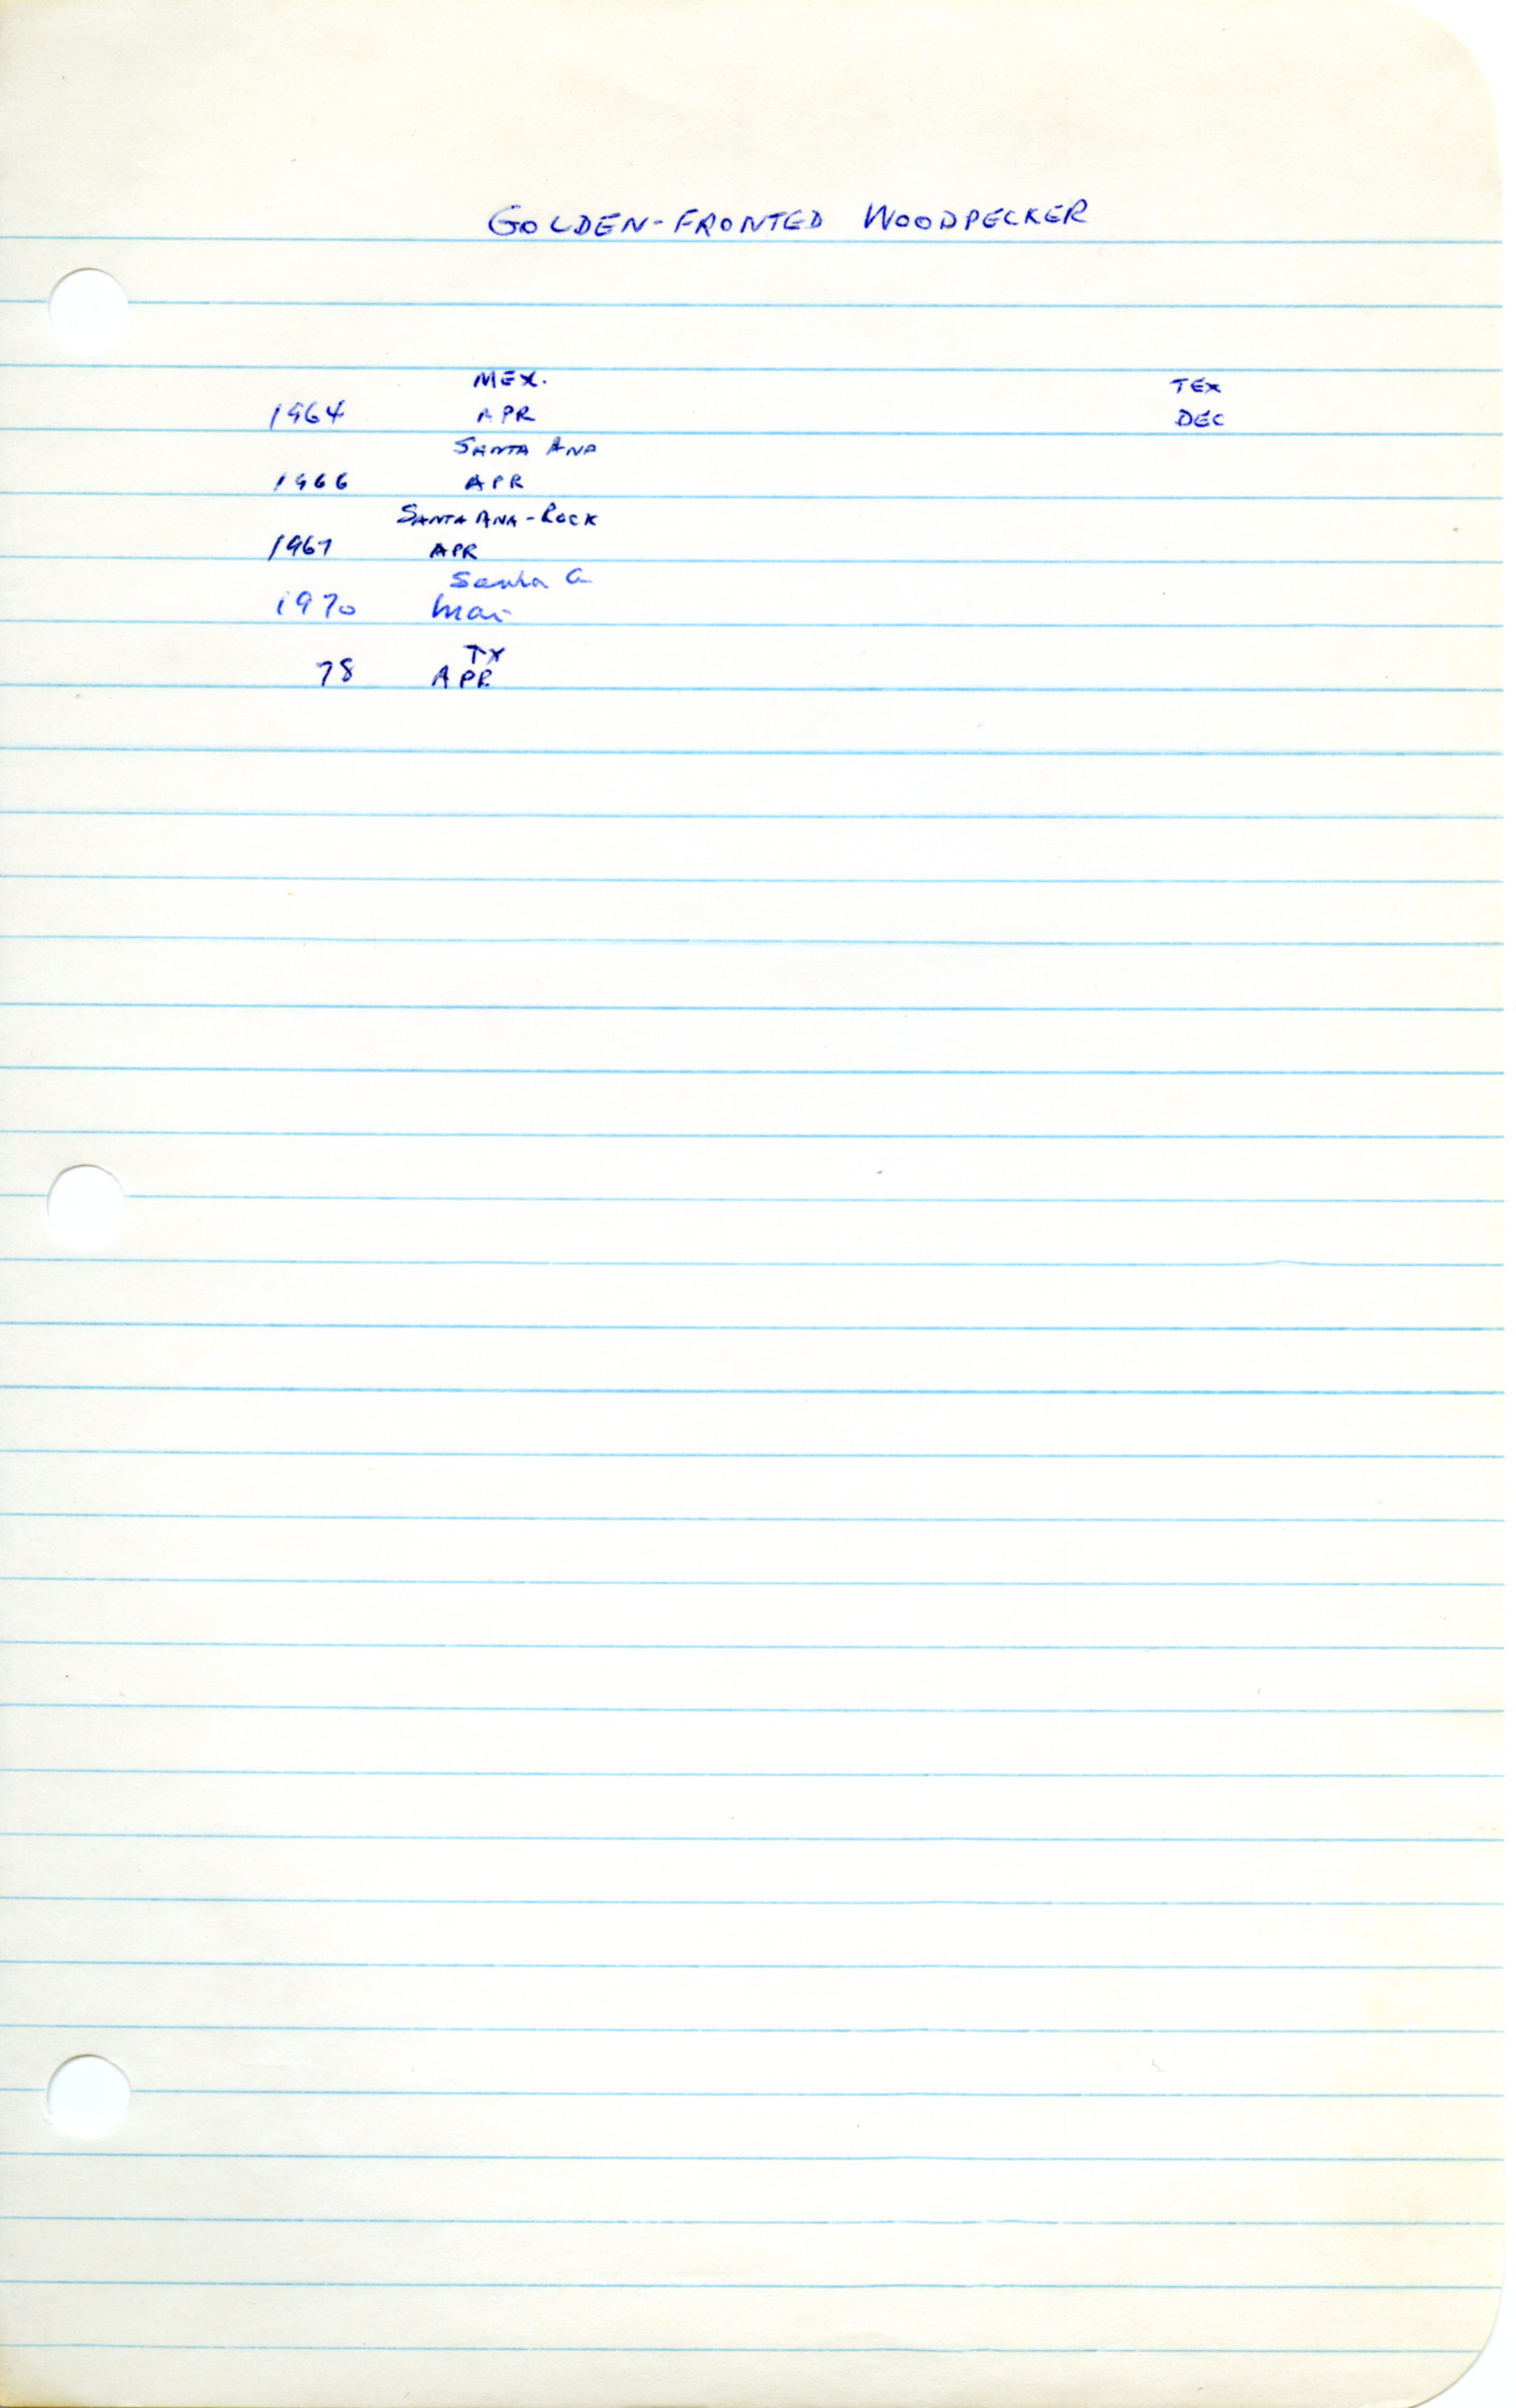 GOLDEN-FRONTED WOODPECKER
MEX. TEX
1964 APR DEC
SANTA ANA
1966 APR
SANTA ANA - ROCK
1967 APR
Santa a
1970 Mar
TX
78 APR